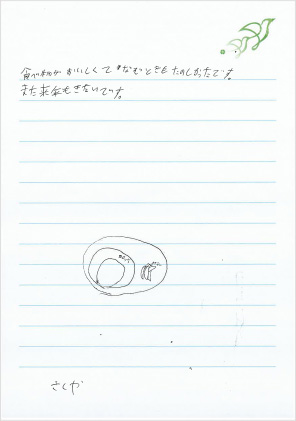 食べ物がおいしくて まなむときもたのしかったです。
また来年もきたいです。
さくや